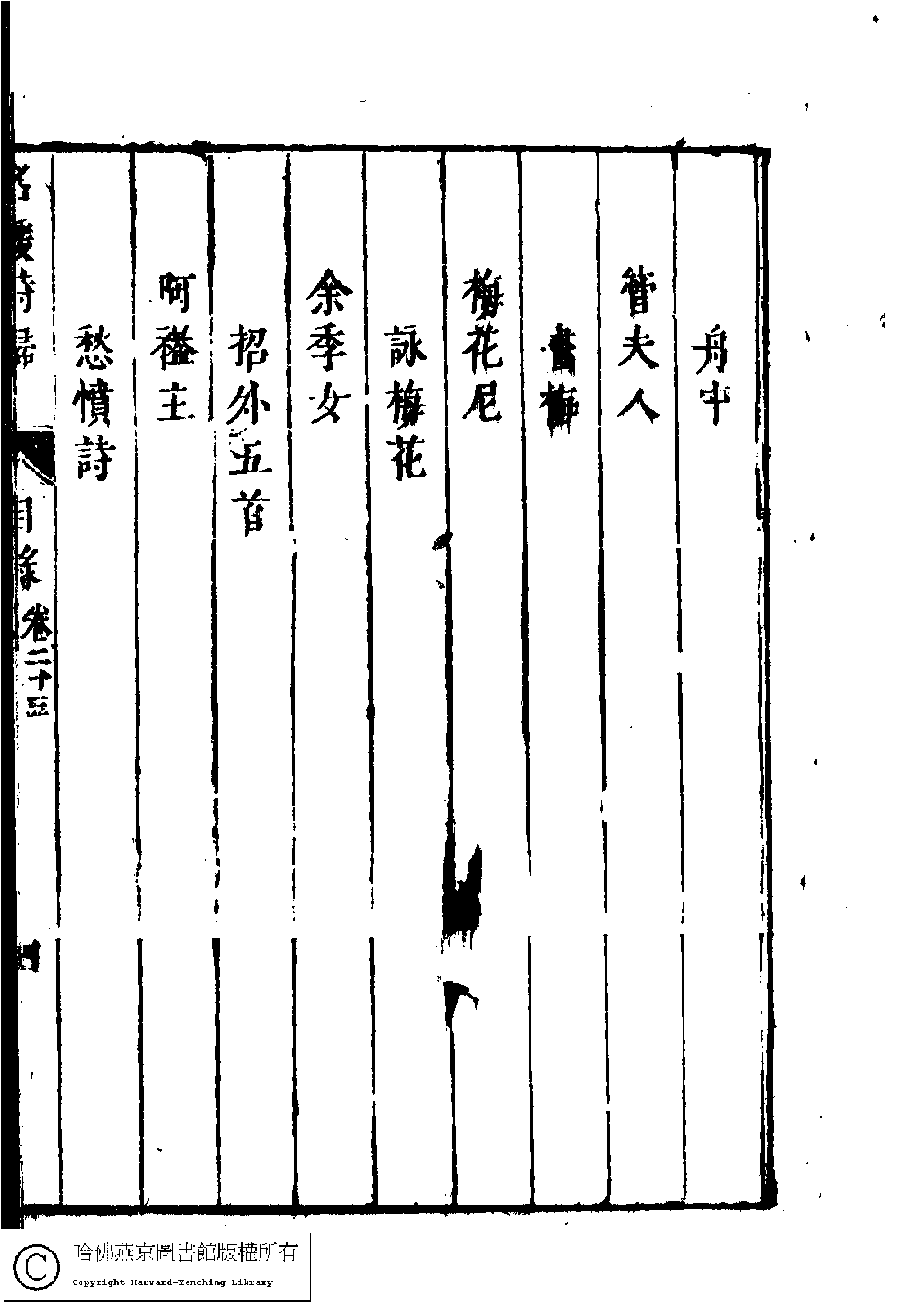 舟中
管夫人
畫梅
梅花尼
詠梅花
余季女
招外五首
阿主
愁憤詩
名媛詩歸 目錄 卷二十三
哈佛燕京圖書館版權所有
Copyright Harvard-Yenching Library